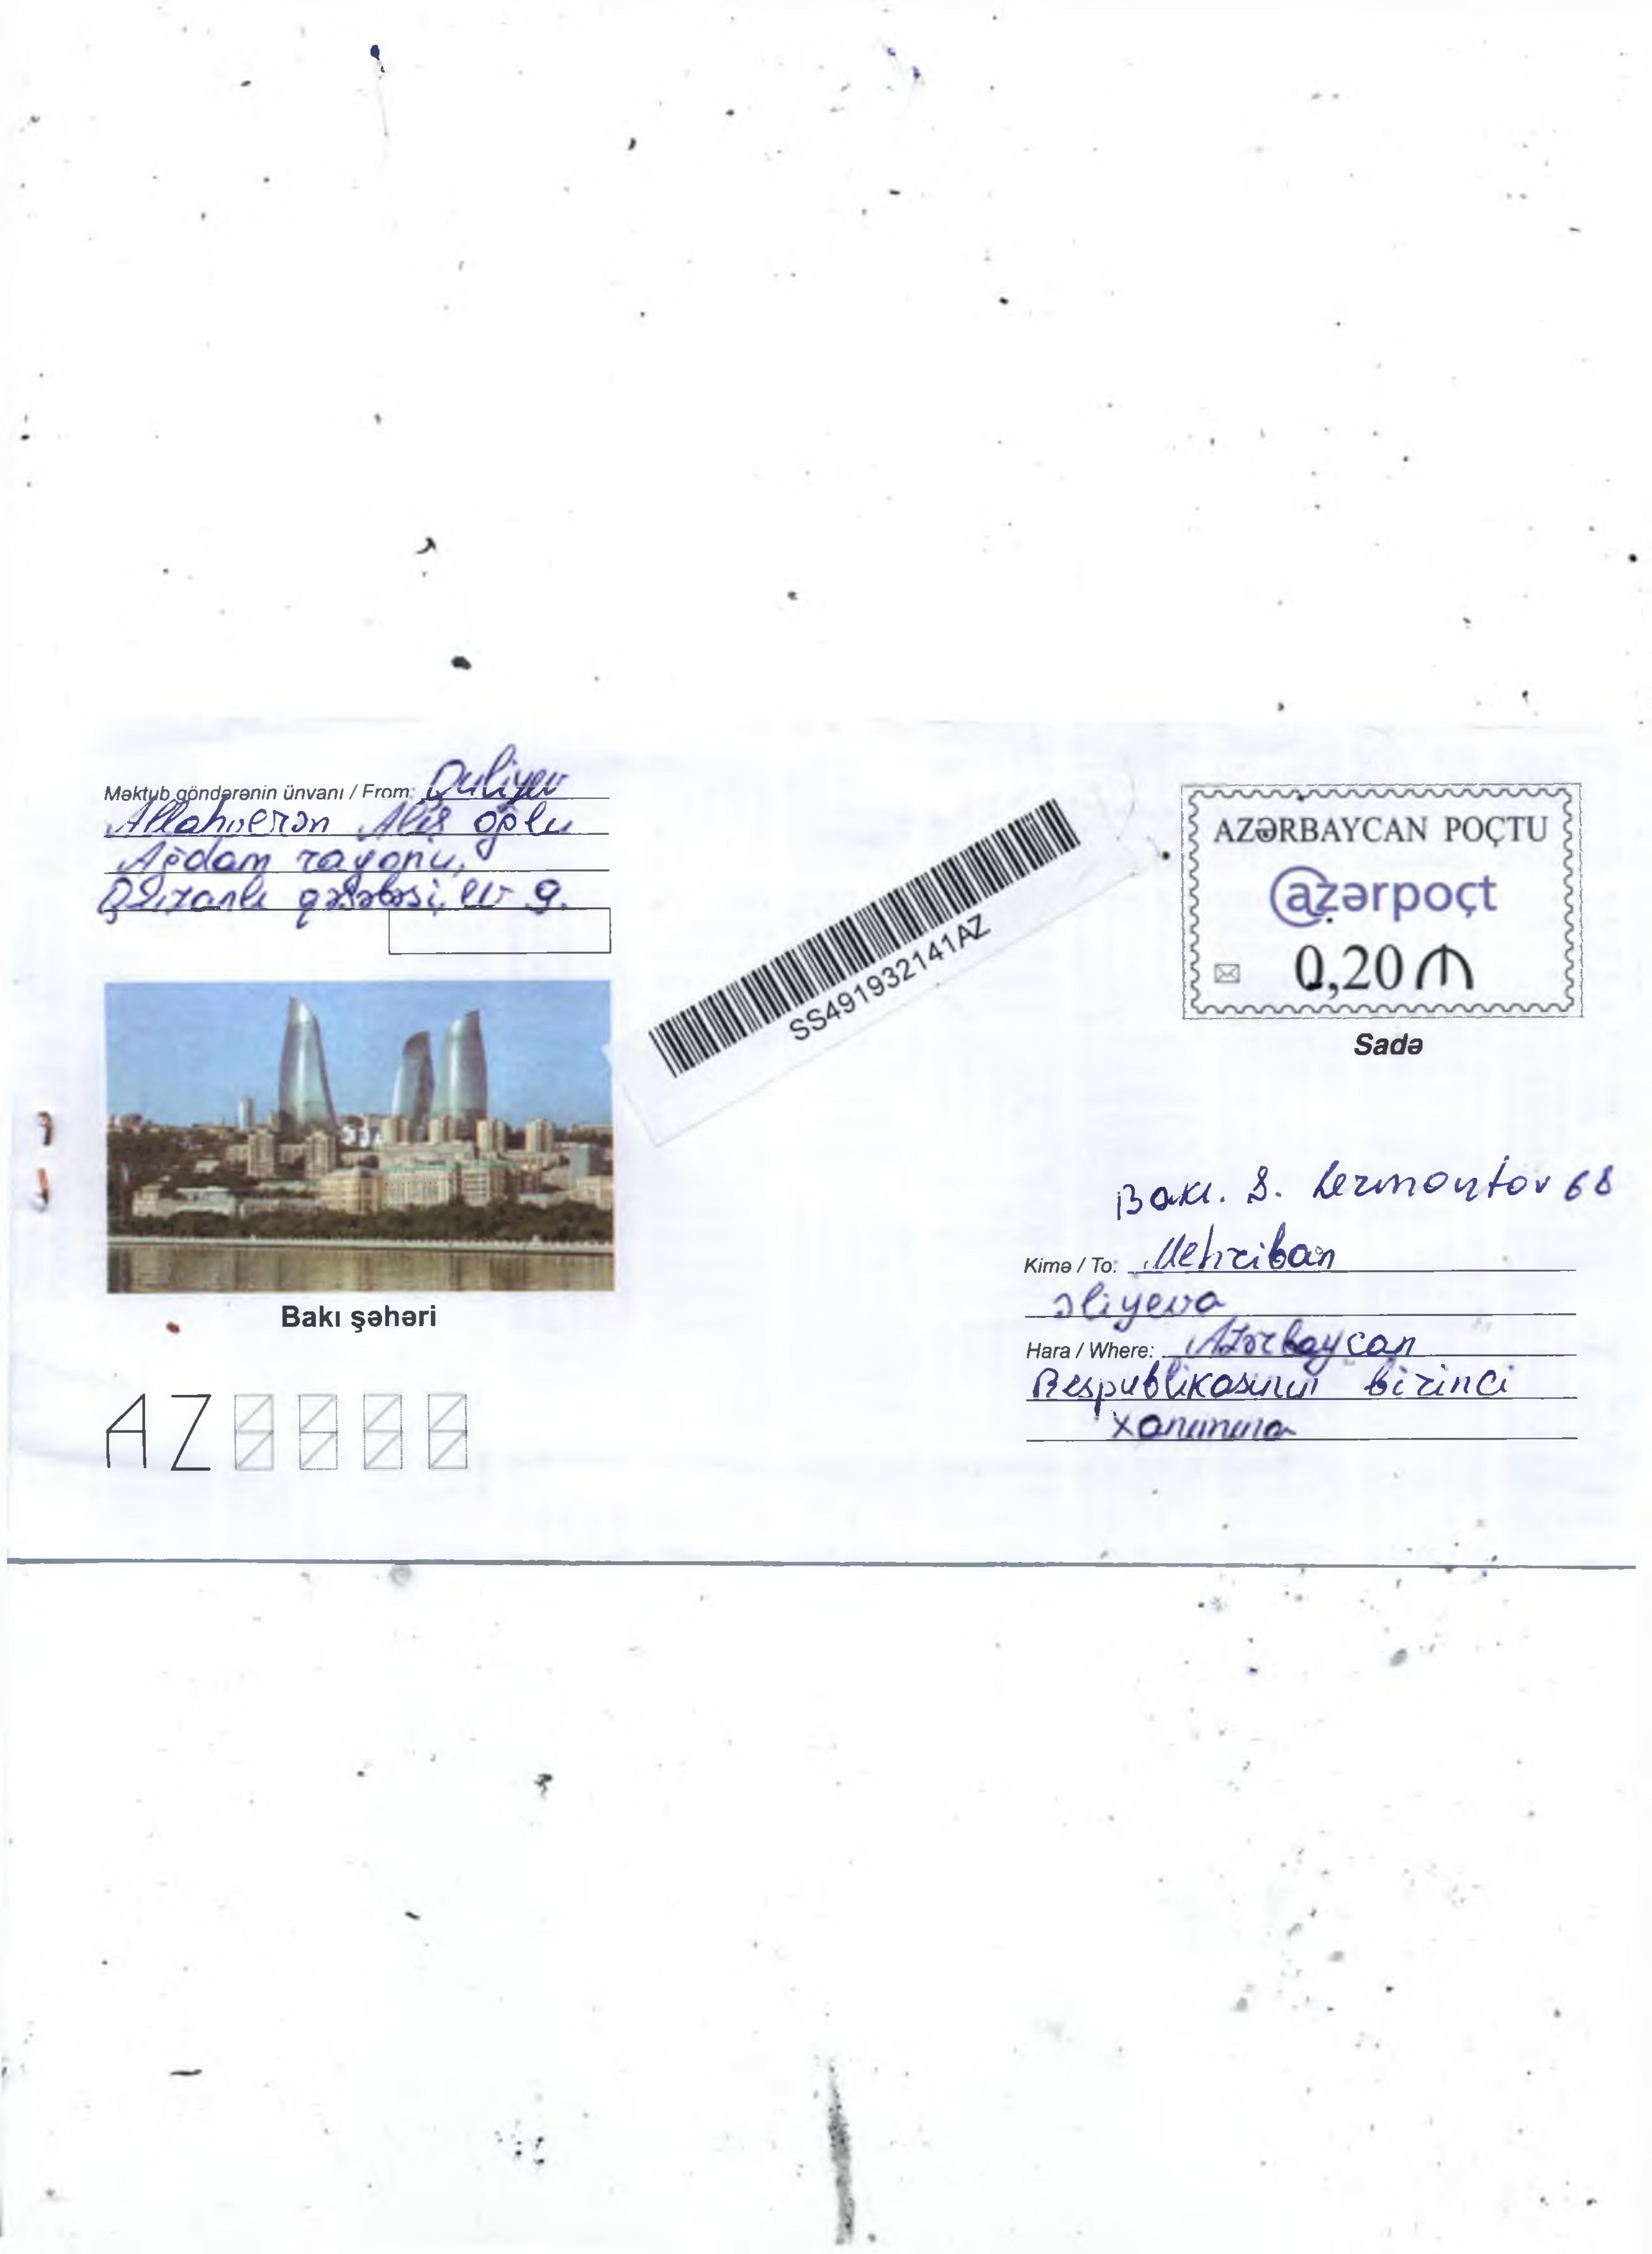 Məktub göndərənin ünvanı / From: Quliyev
Allahverən Alış oğlu
Ağdam rayonu,
Quzanlı qəsəbəsi, ev 9.
SS491932141AZ
AZƏRBAYCAN POÇTU
azərpoçt
0,20 ₼
Sadə
Bakı şəhəri
Bakı. ş. Lermontov 68
Kimə / To: Mehriban
Əliyeva
Hara / Where: Azərbaycan
Respublikasının birinci
xanımına
AZ